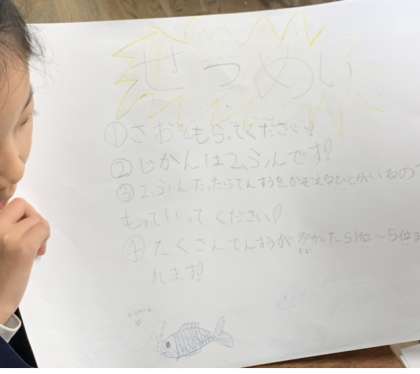 せつめい
①さおをもらってください!
②じかんは2ふんです!
③2ふんたったらてんすうをかぞえ
もっていってください!
④たくさんてんすうが かかったら1位~5位ま
れます!